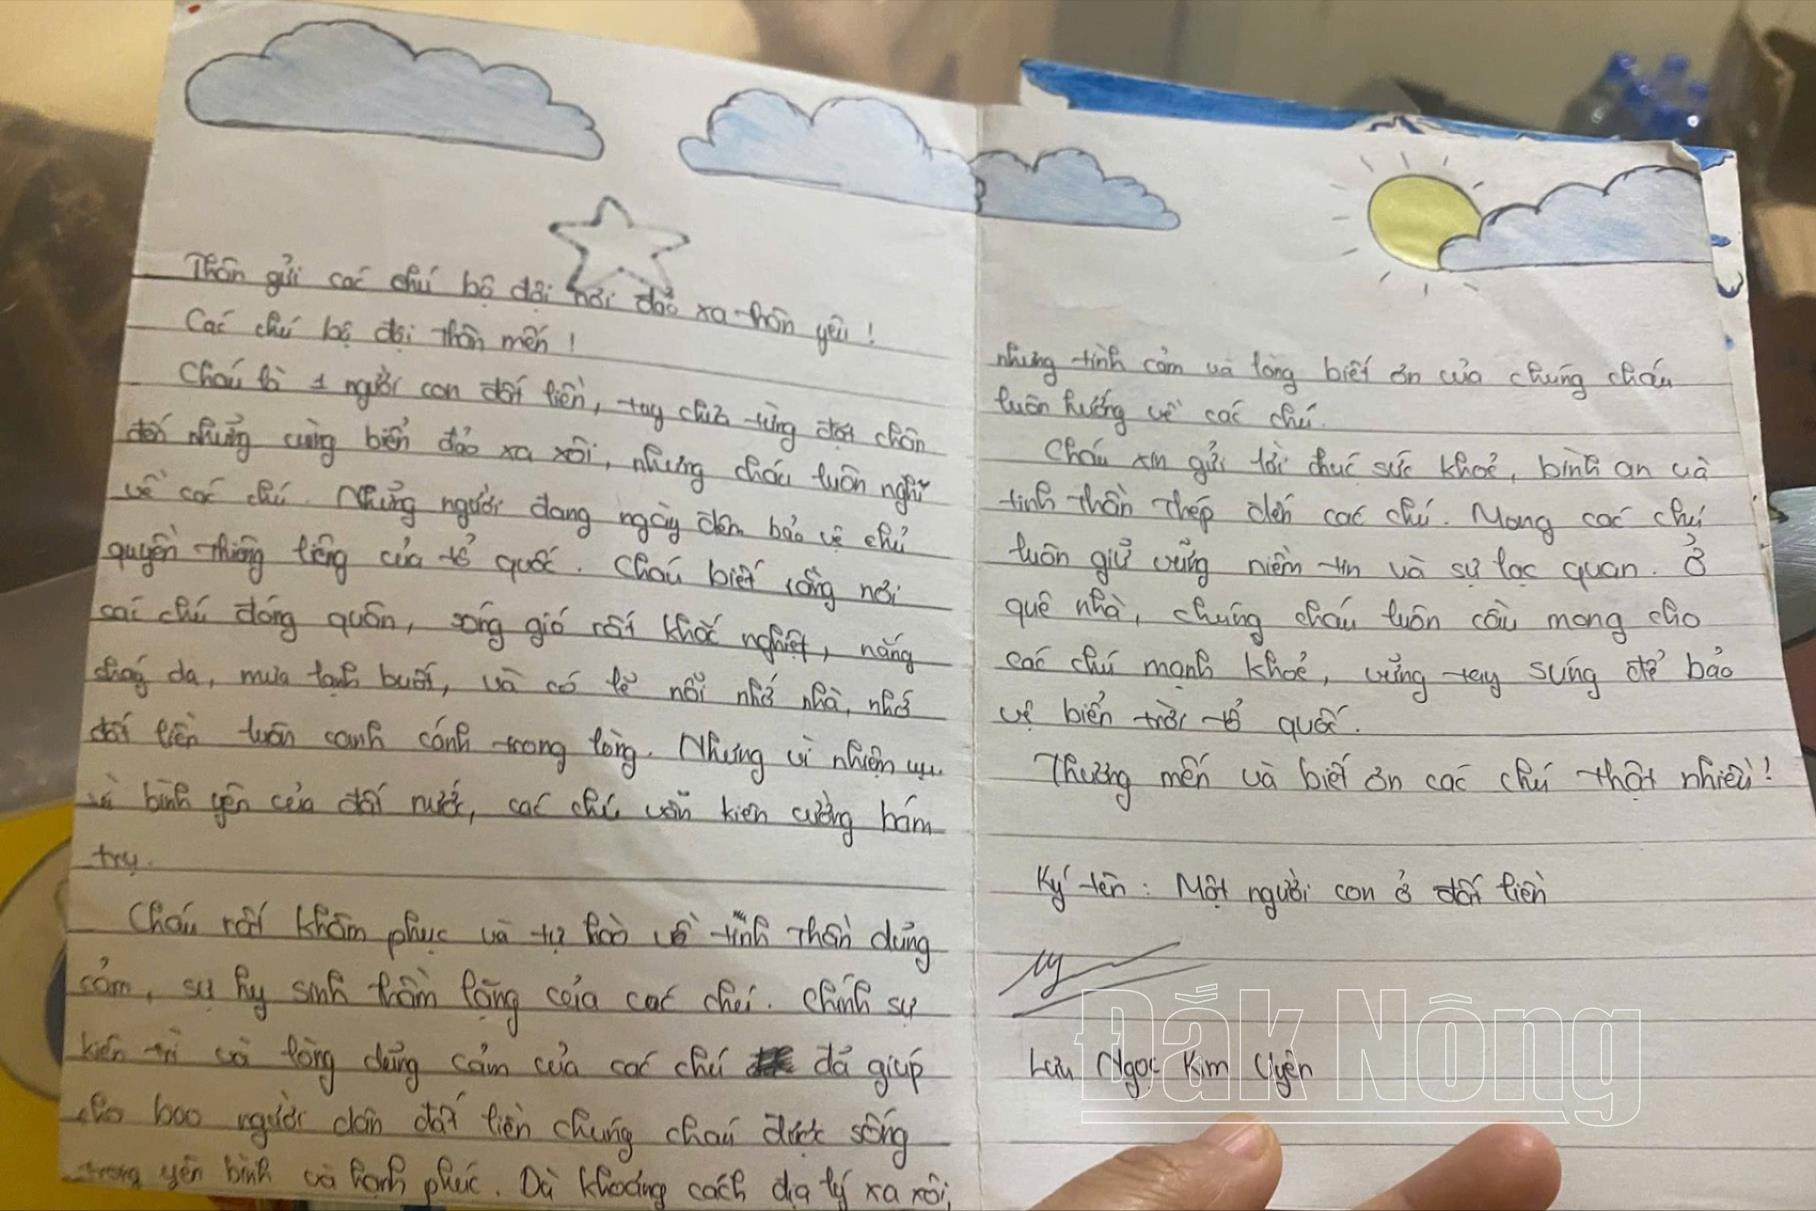 Thân gửi các chú bộ đội nơi đảo xa thân yêu!
Các chú bộ đội thân mến!
Cháu là 1 người con đất liền, tuy chưa từng đặt chân
đến những vùng biển đảo xa xôi, nhưng cháu luôn nghĩ
về các chú. Những người đang ngày đêm bảo vệ chủ
quyền thiêng liêng của tổ quốc. Cháu biết rằng nơi
các chú đóng quân, sóng gió rất khắc nghiệt, nắng
cháy da, mưa lạnh buốt, và có lẽ nỗi nhớ nhà, nhớ
đất liền luôn canh cánh trong lòng. Nhưng vì nhiệm vụ
vì bình yên của đất nước, các chú vẫn kiên cường bám
trụ.
Cháu rất khâm phục và tự hào về tinh thần dũng
cảm, sự hy sinh thầm lặng của các chú. Chính sự
kiên trì và lòng dũng cảm của các chú đã giúp
cho bao người dân đất liền chúng cháu được sống
trong yên bình và hạnh phúc. Dù khoảng cách địa lý xa xôi,
nhưng tình cảm và lòng biết ơn của chúng cháu
luôn hướng về các chú.
Cháu xin gửi lời chúc sức khoẻ, bình an và
tinh thần thép đến các chú. Mong các chú
luôn giữ vững niềm tin và sự lạc quan. Ở
quê nhà, chúng cháu luôn cầu mong cho
các chú mạnh khoẻ, vững tay súng để bảo
vệ biển trời tổ quốc.
Thương mến và biết ơn các chú thật nhiều!
Ký tên: Một người con ở đất liền
Lưu Ngọc Kim Uyên
Đắk Nông